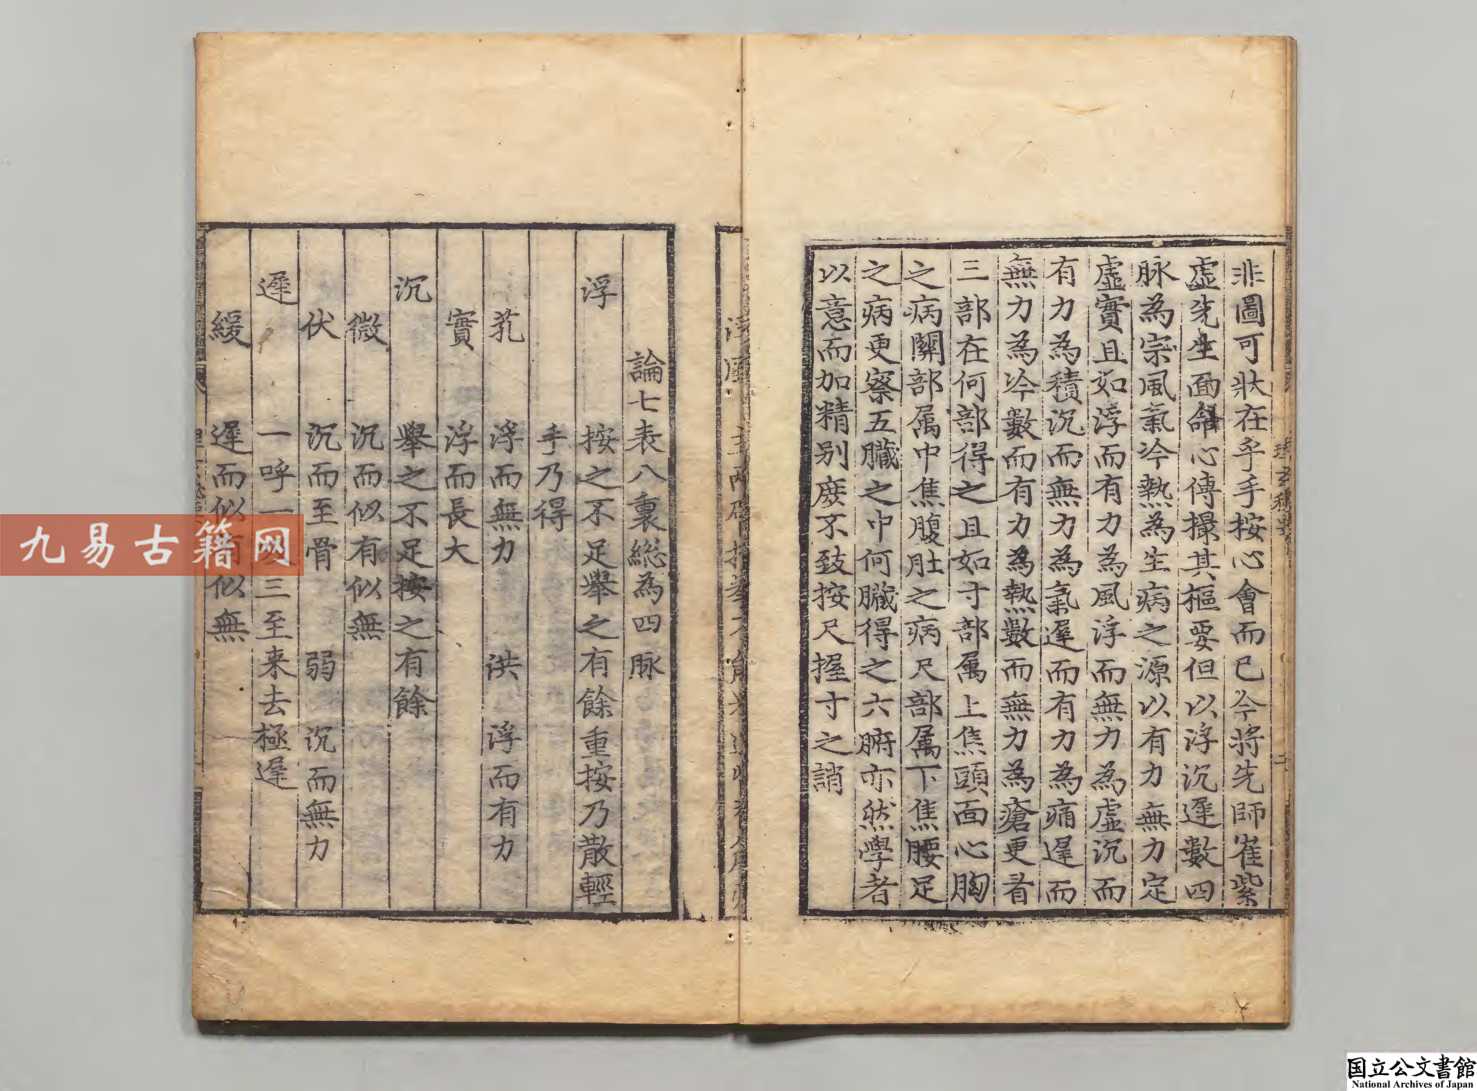 非圖可狀在乎手按心會而已今将先師崔紫
虚先生面命心傳撮其樞要但以浮沉遲數四
脉為宗風氣冷熱為生病之源以有力無力定
虚實且如浮而有力為風浮而無力為虚沉而
有力為積沉而無力為氣遲而有力為痛遲而
無力為冷數而有力為熱數而無力為瘡更看
三部在何部得之且如寸部属上焦頭面心胸
之病關部属中焦腹肚之病尺部属下焦腰足
之病更察五臓之中何臓得之六腑亦然學者
以意而加精别庶不致按尺握寸之誚
論七表八裏総為四脉
浮 按之不足舉之有餘重按乃散輕
手乃得
芤 浮而無力 洪 浮而有力
實 浮而長大
沉 舉之不足按之有餘
微 沉而似有似無
伏 沉而至骨 弱 沉而無力
遲 一呼一三至来去極遲
緩 遲而似有似無
九易古籍网
国立公文書館
National Archives of Japan